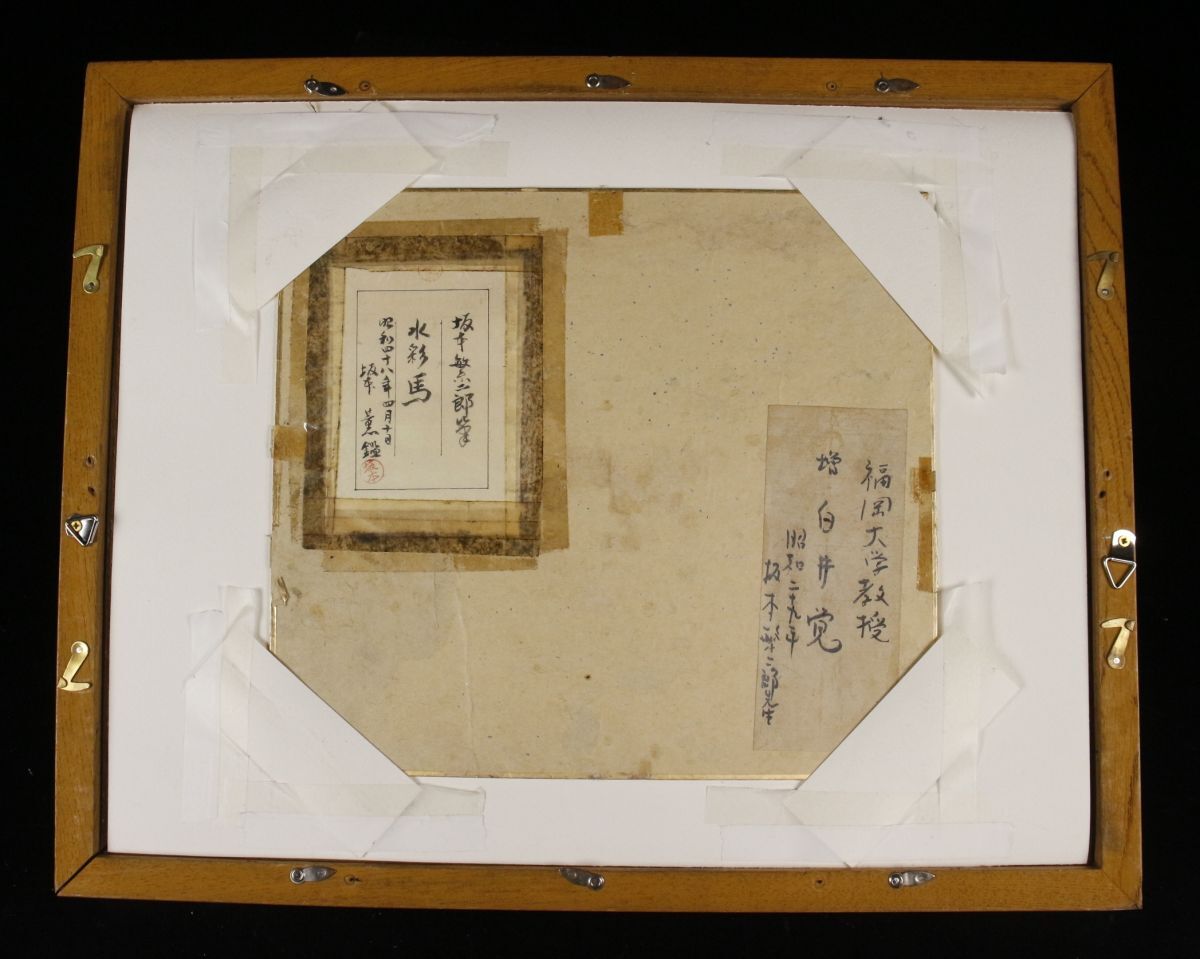 坂本繁二郎筆
水彩 馬
昭和四十八年四月十日
坂本 薫鑑
福岡大学教授
増 白井覚
昭和二十九年
坂本繁二郎先生